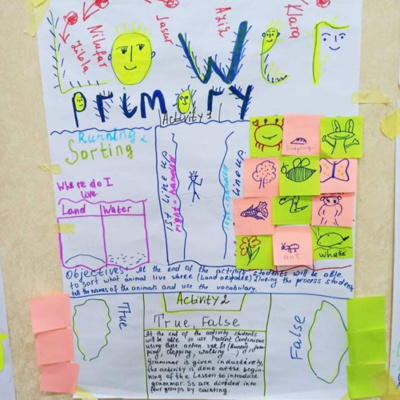 Lola
Nilufar
Jasur
Aziz
Klara
W
primary
Activity 1
Running
Sorting
Where do I
live
Land
Water
1st Line up
Line up
ant
whale
Objectives: At the end of the activity students will be able
to sort what animal live where (Land or water) During the process students
tell the names of the animals and use the vocabulary.
Activity 2
True
True, False
False
At the end of the activity students
will be able to use Present Continuous
using these action verbs (Running, jum
ping, clapping, walking)
grammar is given inductively,
the activity is done at the begin
ning of the Lesson to introduce
grammar. Ss are divided into
four groups by counting.